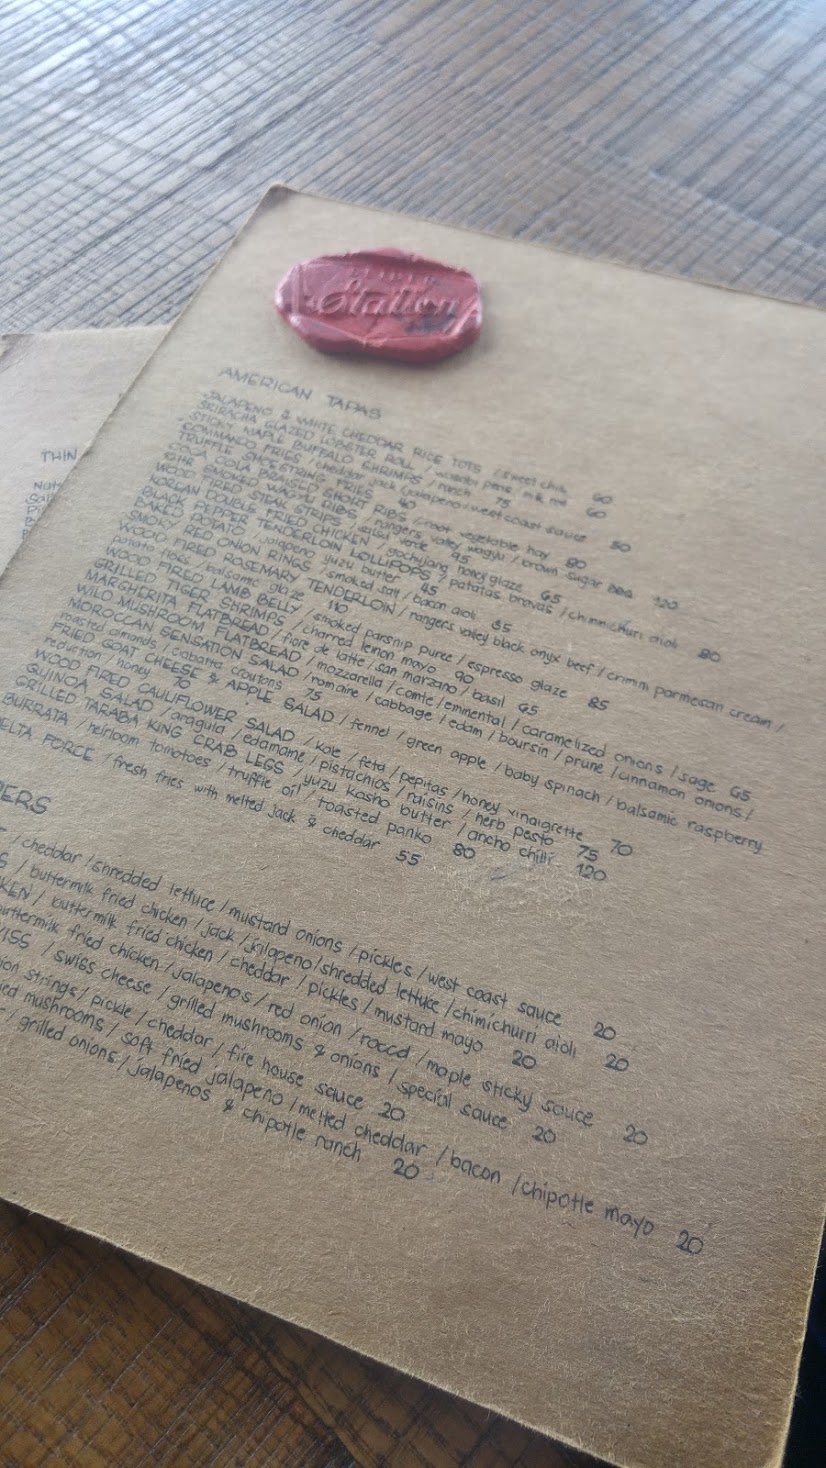 Station
THIN
AMERICAN TAPAS
JALAPENO & WHITE CHEDDAR RICE TOTS / sweet chili 60
SRIRACHA GLAZED LOBSTER ROLL / 75
STICKY MAPLE BUFFALO SHRIMPS / ranch 60
COMMANDO FRIES / cheddar jack / jalapeno / west coast sauce 50
TRUFFLE SHOESTRING FRIES 40
COCA COLA BRAISED SHORT RIBS / root vegetable hay 80
SMOKED WAGYU RIBS / rangers valley wagyu / brown sugar BBQ 120
WOOD FIRED STEAK STRIPS / salsa verde 95
KOREAN DOUBLE FRIED CHICKEN / gochujang honey glaze 65
BLACK PEPPER TENDERLOIN LOLLIPOPS / patatas bravas / chimichuri aioli 80
BAKED POTATO / jalapeno yuzu butter 45
SMOKY RED ONION RINGS / smoked salt / bacon aioli 35
WOOD FIRED ROSEMARY TENDERLOIN / rangers valley black onyx beef / crimini parmesan cream /
potato / balsamic glaze 110
WOOD FIRED LAMB BELLY / smoked parsnip puree / espresso glaze 85
GRILLED TIGER SHRIMPS / charred lemon mayo 90
MARGHERITA FLATBREAD / fiore de latte / san marzano / basil 65
WILD MUSHROOM FLATBREAD / mozzarella / comte / emmental / caramelized onions / sage 65
MOROCCAN SENSATION SALAD / romaine / cabbage / edam / boursin / prune / cinnamon onions /
roasted almonds / ciabatta croutons 75
FRIED GOAT CHEESE & APPLE SALAD / fennel / green apple / baby spinach / balsamic raspberry
reduction / honey 70
WOOD FIRED CAULIFLOWER SALAD / kale / feta / pepitas / honey vinaigrette 70
QUINOA SALAD / aragula / edamame / pistachios / raisins / herb pesto 75
GRILLED TARABA KING CRAB LEGS / yuzu kosho butter / ancho chilli 120
BURRATA / heirloom tomatoes / truffle oil / toasted panko 80
DELTA FORCE / fresh fries with melted jack & cheddar 55
/ cheddar / shredded lettuce / mustard onions / pickles / west coast sauce 20
/ buttermilk fried chicken / jack / jalapeno / shredded lettuce / chimichurri aioli 20
/ buttermilk fried chicken / cheddar / pickles / mustard mayo 20
buttermilk fried chicken / jalapenos / red onion / rocca / maple sticky sauce 20
/ swiss cheese / grilled mushrooms & onions / special sauce 20
strings / pickle / cheddar / fire house sauce 20
mushrooms / soft fried jalapeno / melted cheddar / bacon / chipotle mayo 20
/ grilled onions / jalapenos & chipotle ranch 20